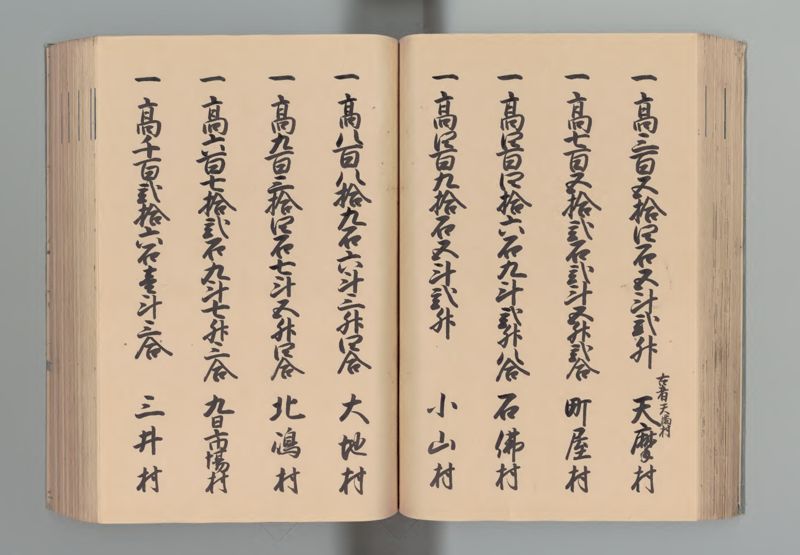 一 高三百五拾四石五斗弐升 天摩村
古者天満村
一 高七百五拾弐石弐斗五升弐合 町屋村
一 高四百四拾六石九斗弐升八合 石佛村
一 高四百九拾石五斗弐升 小山村
一 高八百八拾九石六斗三升四合 大地村
一 高九百三拾四石七斗五升四合 北嶋村
一 高六百七拾弐石九斗七升三合 九日市場村
一 高千百弐拾六石壱斗三合 三井村